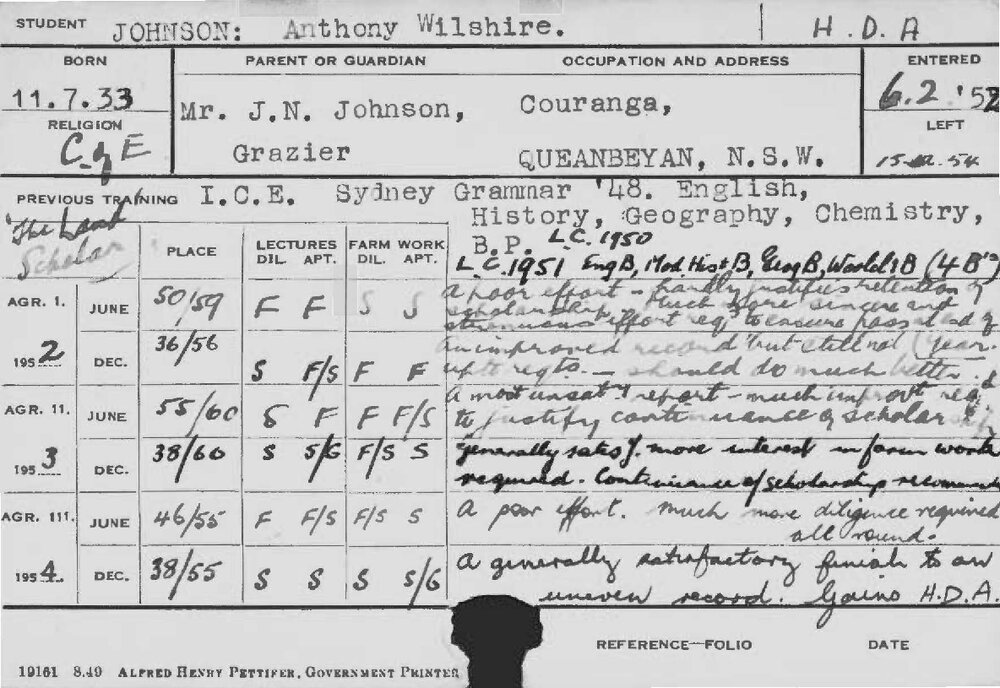 STUDENT JOHNSON: Anthony Wilshire. H.D.A
BORN PARENT OR GUARDIAN OCCUPATION AND ADDRESS ENTERED
11.7.33 Mr. J.N. Johnson, Couranga, 6.2.'52
RELIGION LEFT
C of E Grazier QUEANBEYAN, N.S.W. 54
PREVIOUS TRAINING I.C.E. Sydney Grammar '48. English,
History, Geography, Chemistry,
"The Land B.P. L.C. 1950
Scholar PLACE LECTURES FARM WORK L.C. 1951 Eng B, Mod. Hist B, Geog B, (4 B's)
DIL. APT. DIL. APT.
AGR. I. JUNE 50/59 F F S S A poor effort - hardly justifies retention of
scholarship. Much more sincere and
strenuous effort req'd to ensure pass at end of
1952 DEC. 36/56 S F/S F F an improved record but still not (year.
up to reqts. - should do much better.
AGR. 11. JUNE 55/60 S F F F/S A most unsat'y report - much improvt req.
to justify continuance of scholar
1953 DEC. 38/60 S S/G F/S S Generally satisf. more interest in farm work
required. Continuance of scholarship
AGR. 111. JUNE 46/55 F F/S F/S S A poor effort. Much more diligence required
all round.
1954. DEC. 38/55 S S S S/G A generally satisfactory finish to an
uneven record. Gains H.D.A.
REFERENCE-FOLIO DATE
19161 8.49 ALFRED HENRY PETTIFER, GOVERNMENT PRINTER